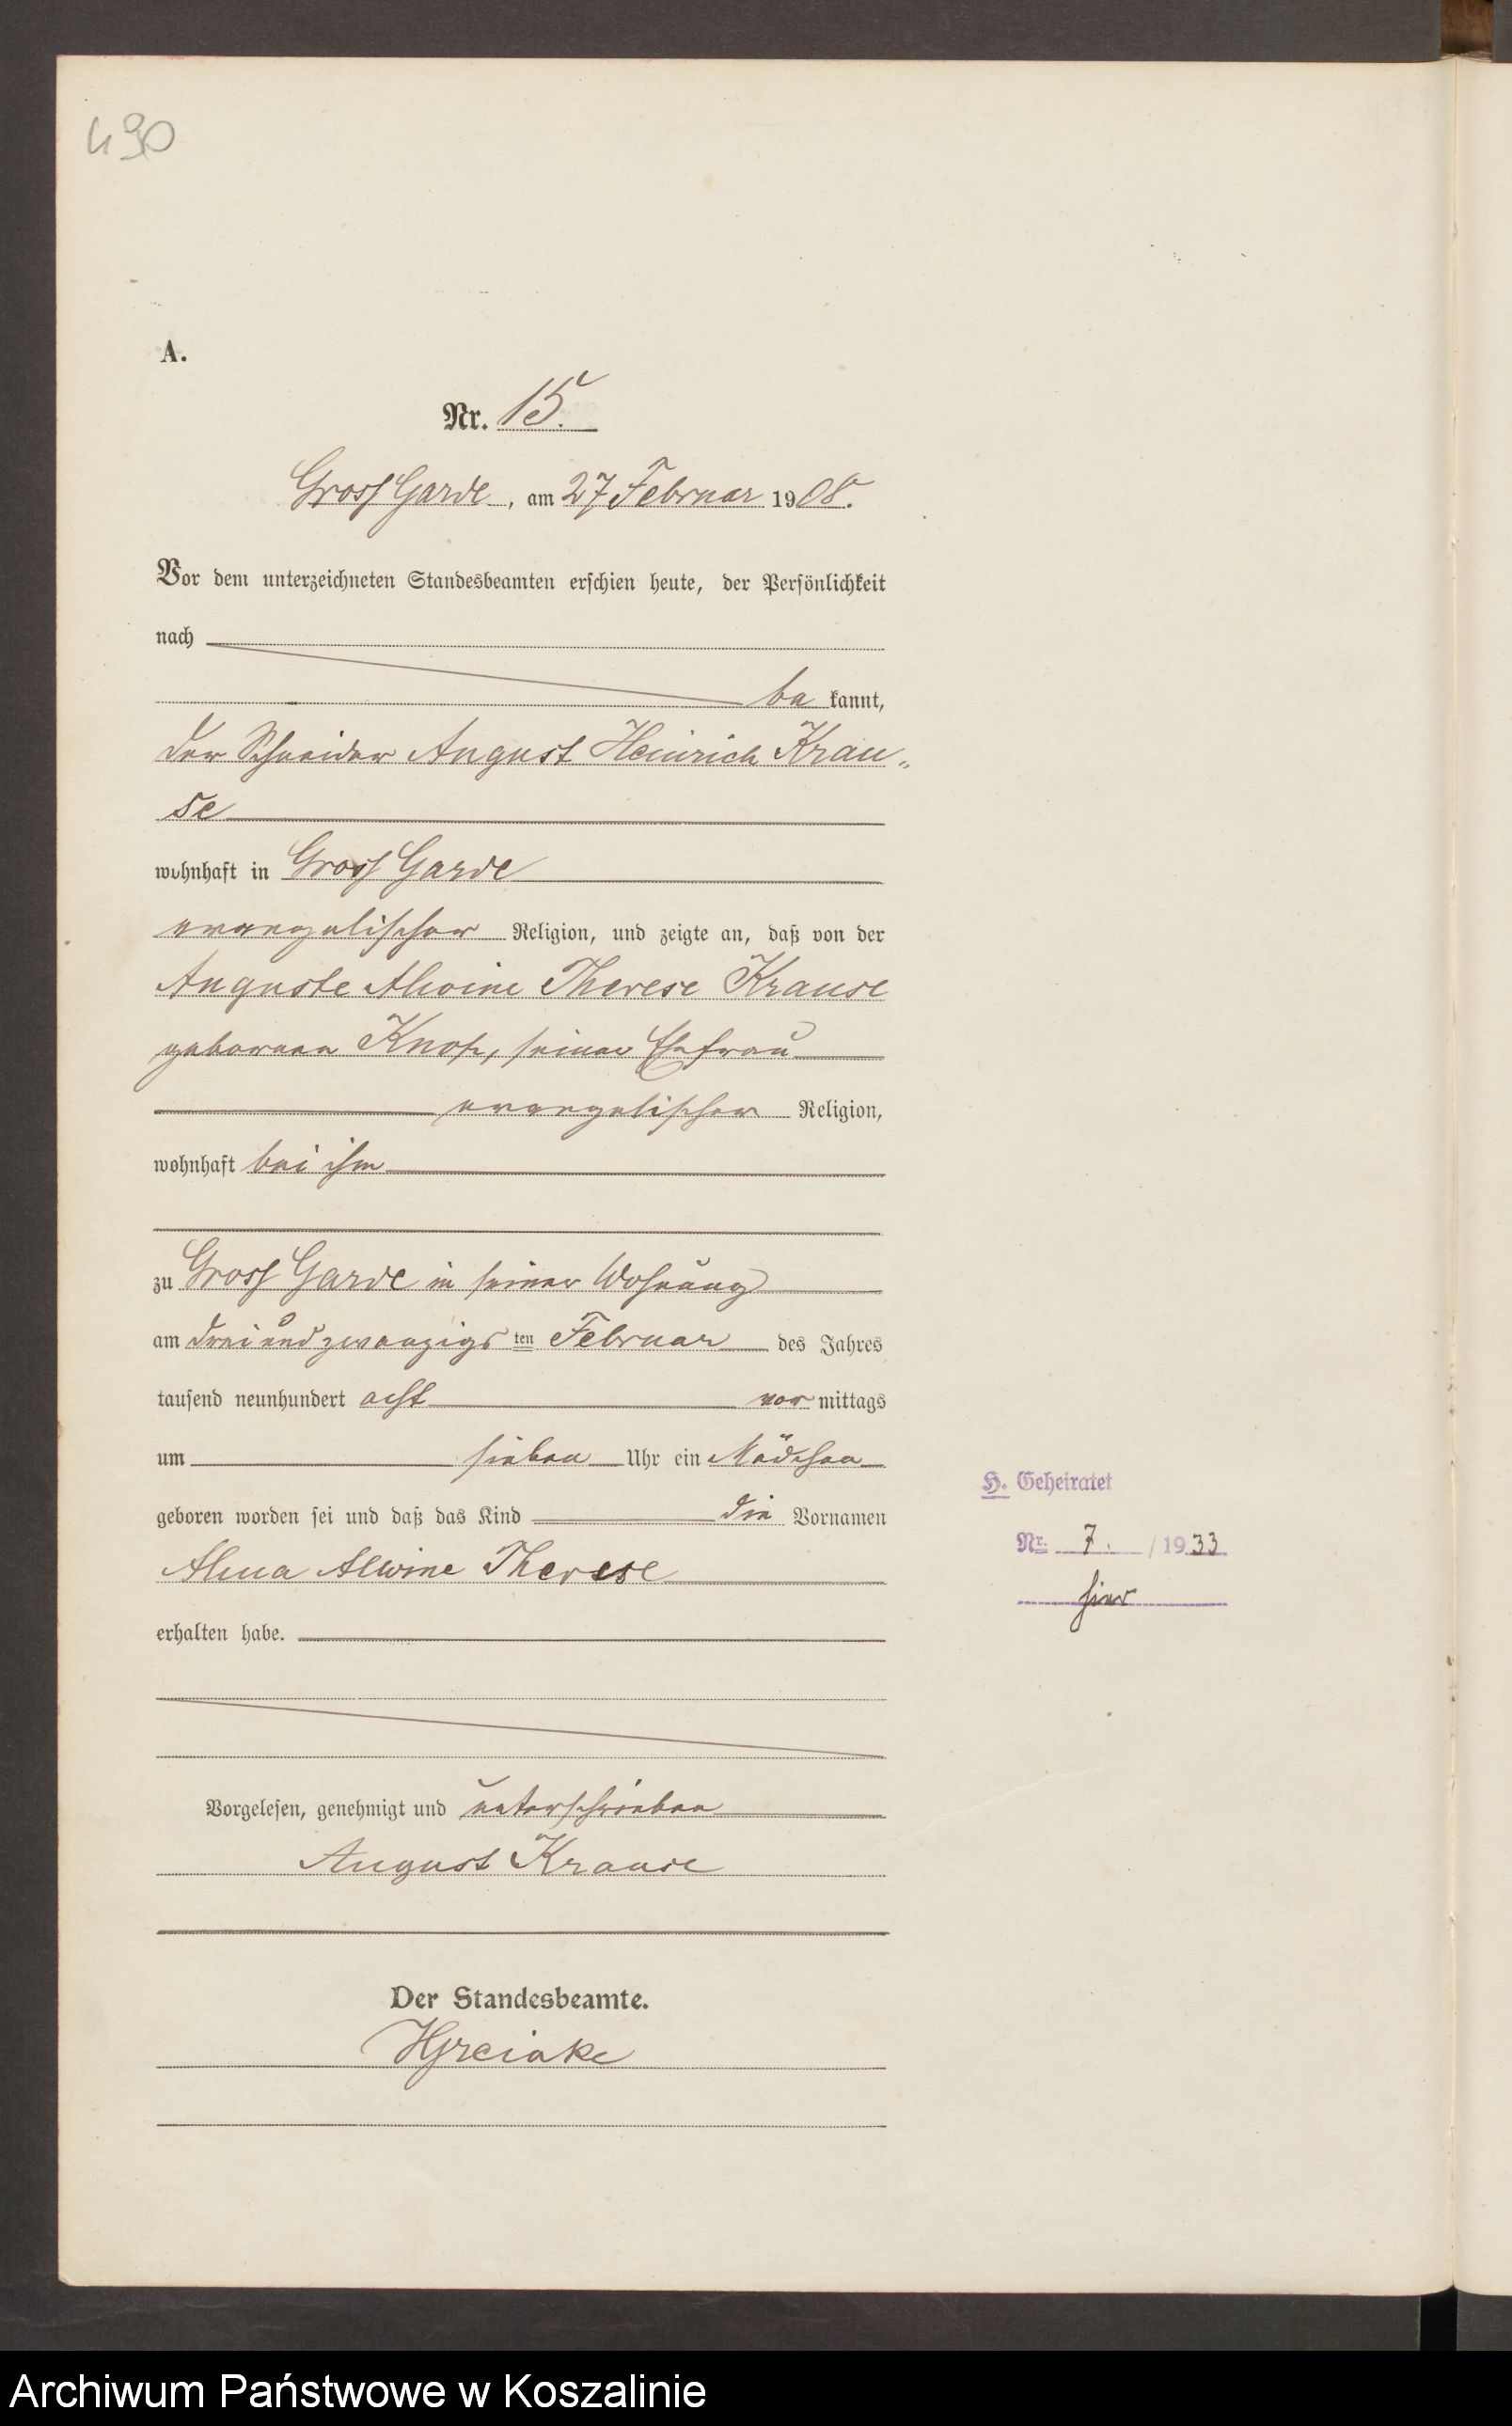 430
A.
Nr. 15.
Gross Garde, am 27 Februar 1908.
Vor dem unterzeichneten Standesbeamten erschien heute, der Persönlichkeit
nach
be kannt,
der Schneider August Heinrich Krau-
se
wohnhaft in Gross Garde
evangelischer Religion, und zeigte an, daß von der
Auguste Alwine Therese Krause
geborenen Knop, seiner Ehefrau
evangelischer Religion,
wohnhaft bei ihm
zu Gross Garde in seiner Wohnung
am dreiundzwanzigs ten Februar des Jahres
tausend neunhundert acht vor mittags
um sieben Uhr ein Mädchen
geboren worden sei und daß das Kind die Vornamen
Alma Alwine Therese
erhalten habe.
H. Geheiratet
Nr. 7. / 1933
hier
Vorgelesen, genehmigt und unterschrieben
August Krause
Der Standesbeamte.
Archiwum Państwowe w Koszalinie